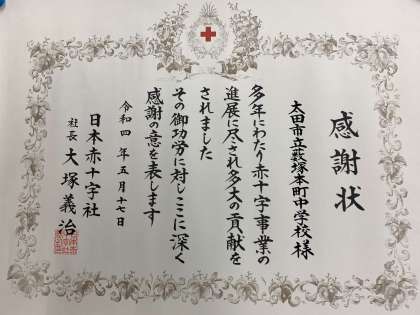 感謝状
太田市立藪塚本町中学校様
多年にわたり赤十字事業の
進展に尽され多大の貢献を
されました
その御功労に対しここに深く
感謝の意を表します
令和四年五月十七日
日本赤十字社
社長 大塚義治